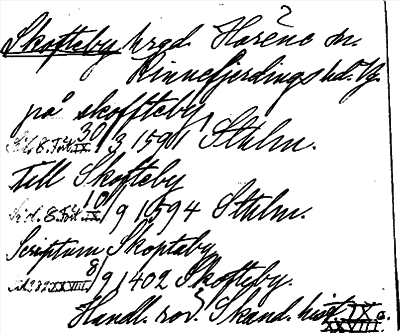 ?
Skofteby hrgd. Harene sn.
Kinnefjerdings hd. Vg.
på skoffteby
30/3 1591 Sthlm.
till Skofteby
10/9 1594 Sthlm.
Scriptum Skoptaby
8/9 1402 Skofteby.
Handl. rör. Skand. hist. IX o.
XXVIII.